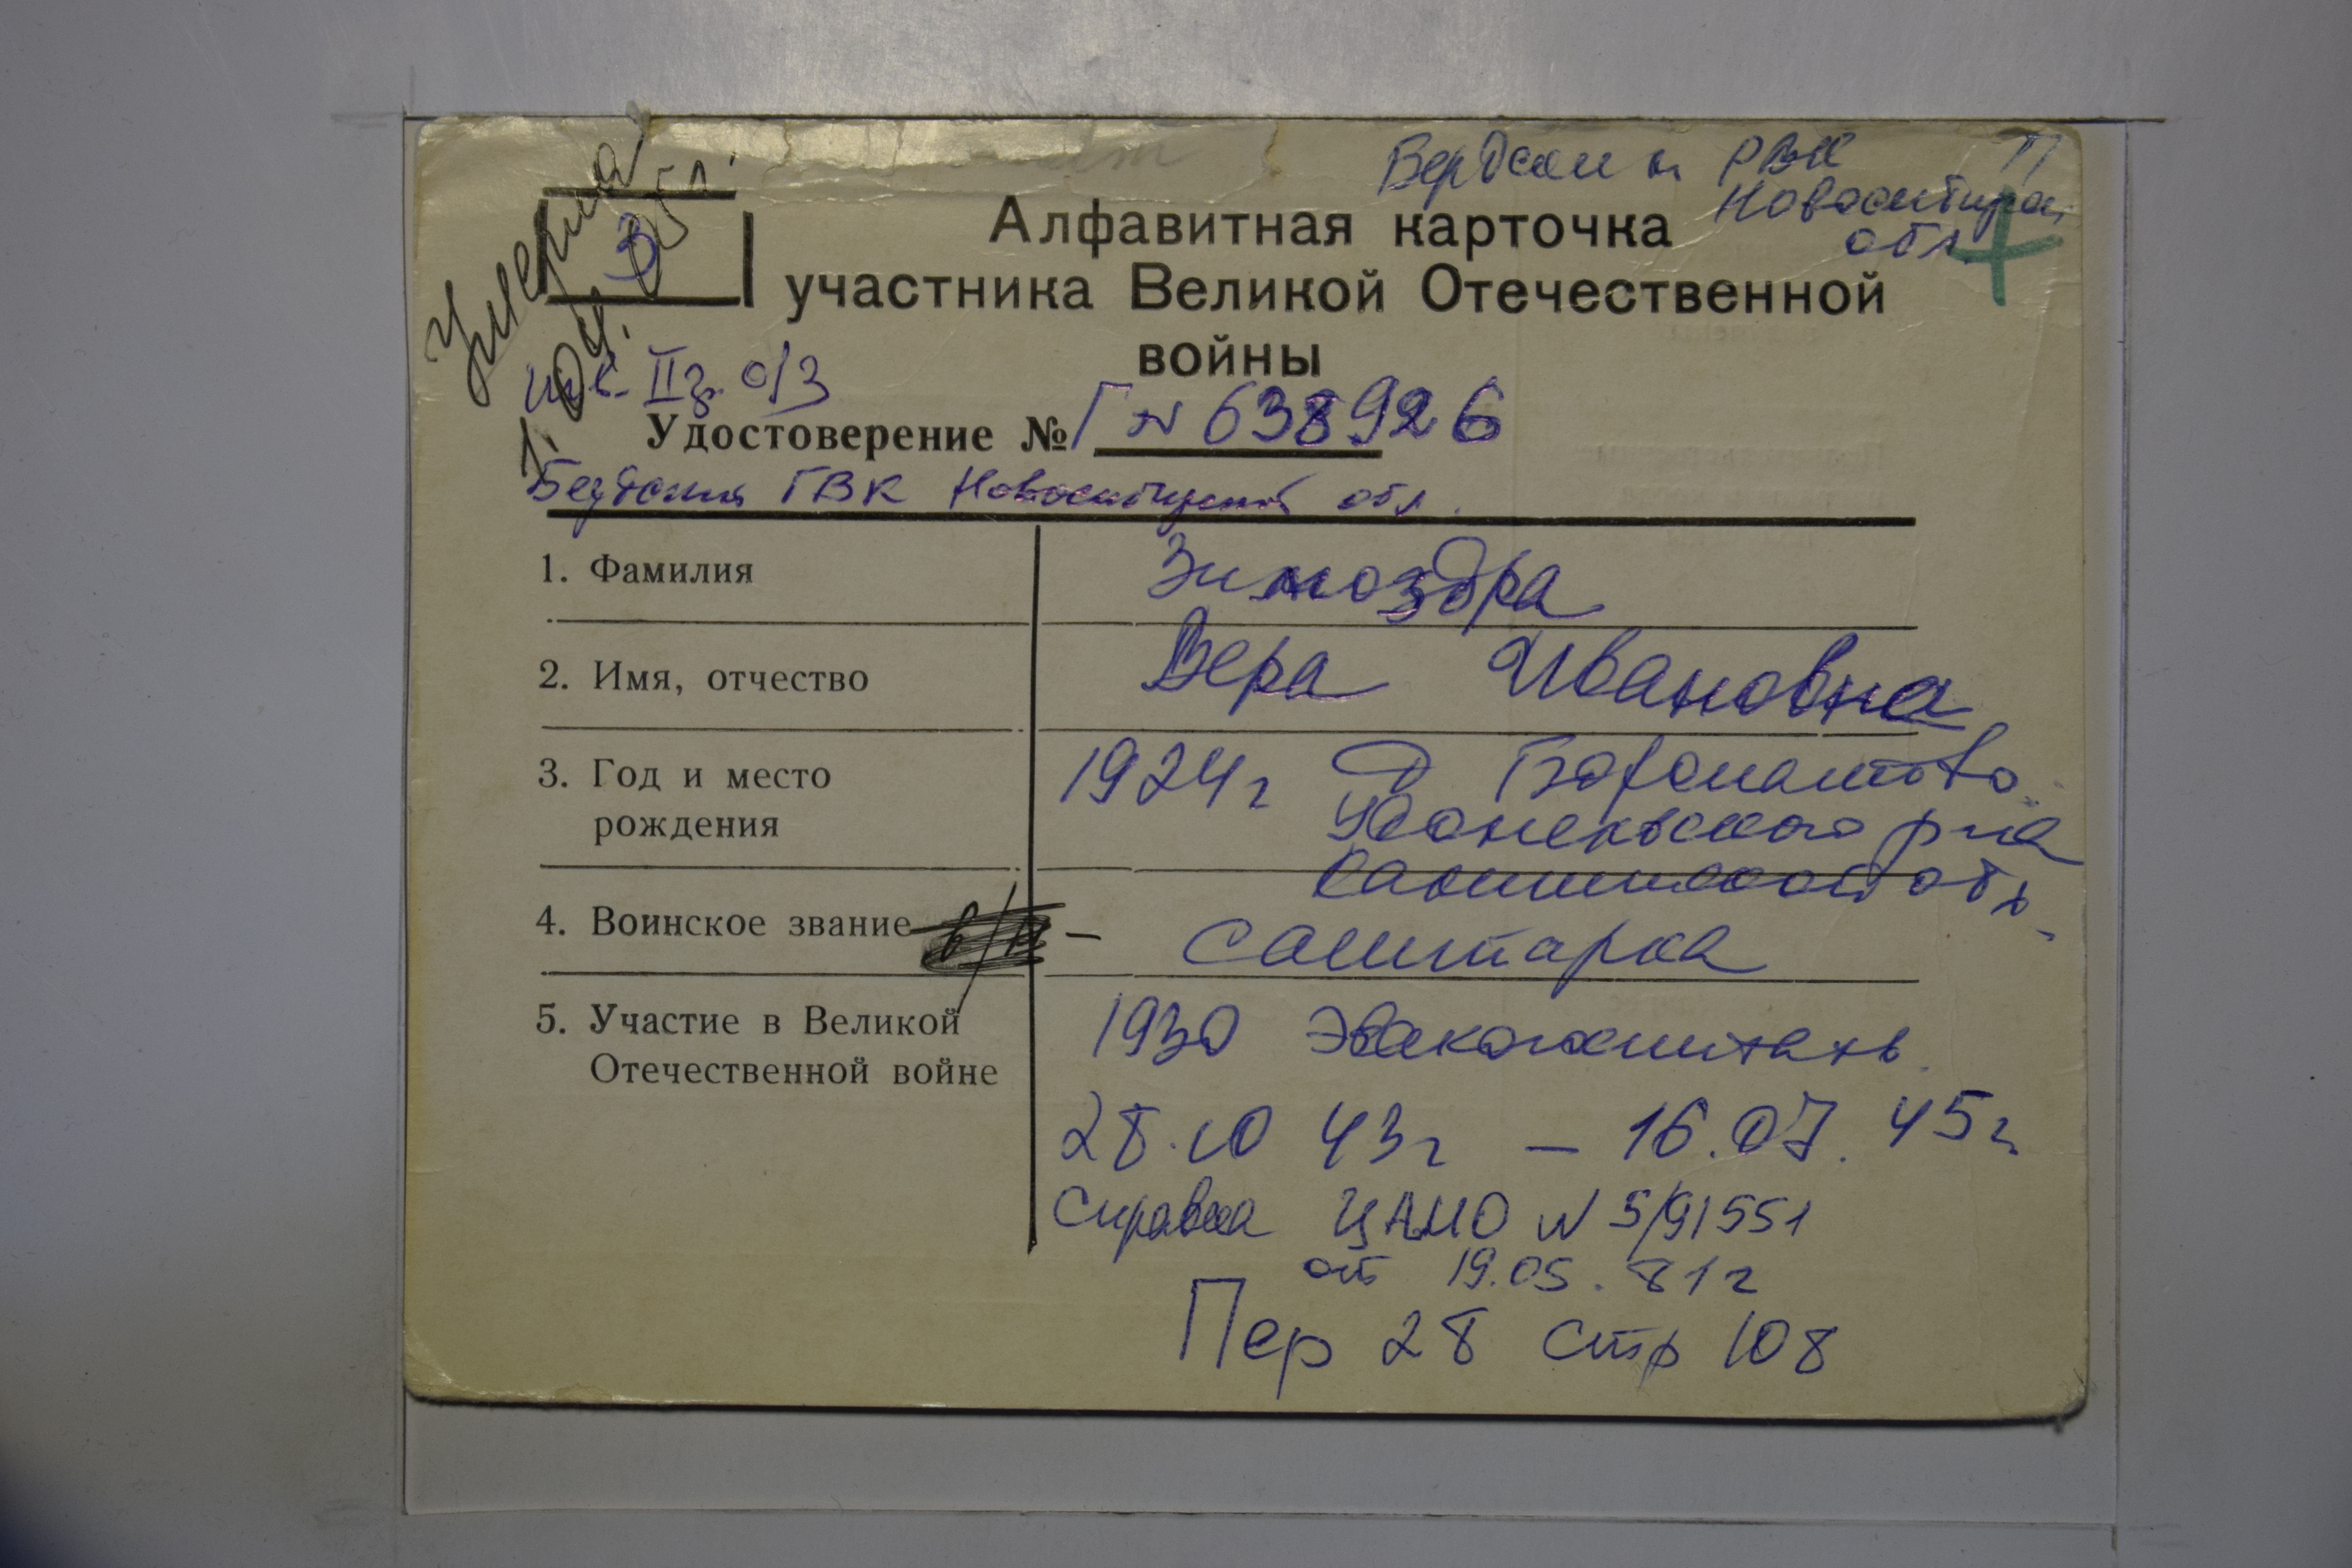 Умерла
1. 04. 05г.
З
Бердский РВК
Новосибирск.
обл.
П
Алфавитная карточка
участника Великой Отечественной
войны
инв. IIгр. о/з
Удостоверение № Г № 638926
Бердский ГВК Новосибирской обл.
1. Фамилия Зимоздра
2. Имя, отчество Вера Ивановна
3. Год и место 1924г д
рождения р-на
обл
4. Воинское звание в/н – санитарка
5. Участие в Великой 1930 Эвакогоспиталь
Отечественной войне
28.10 43г – 16.07. 45г
Справка ЦАМО N 5/91551
от 19.05.81г
Пер 28 стр 108